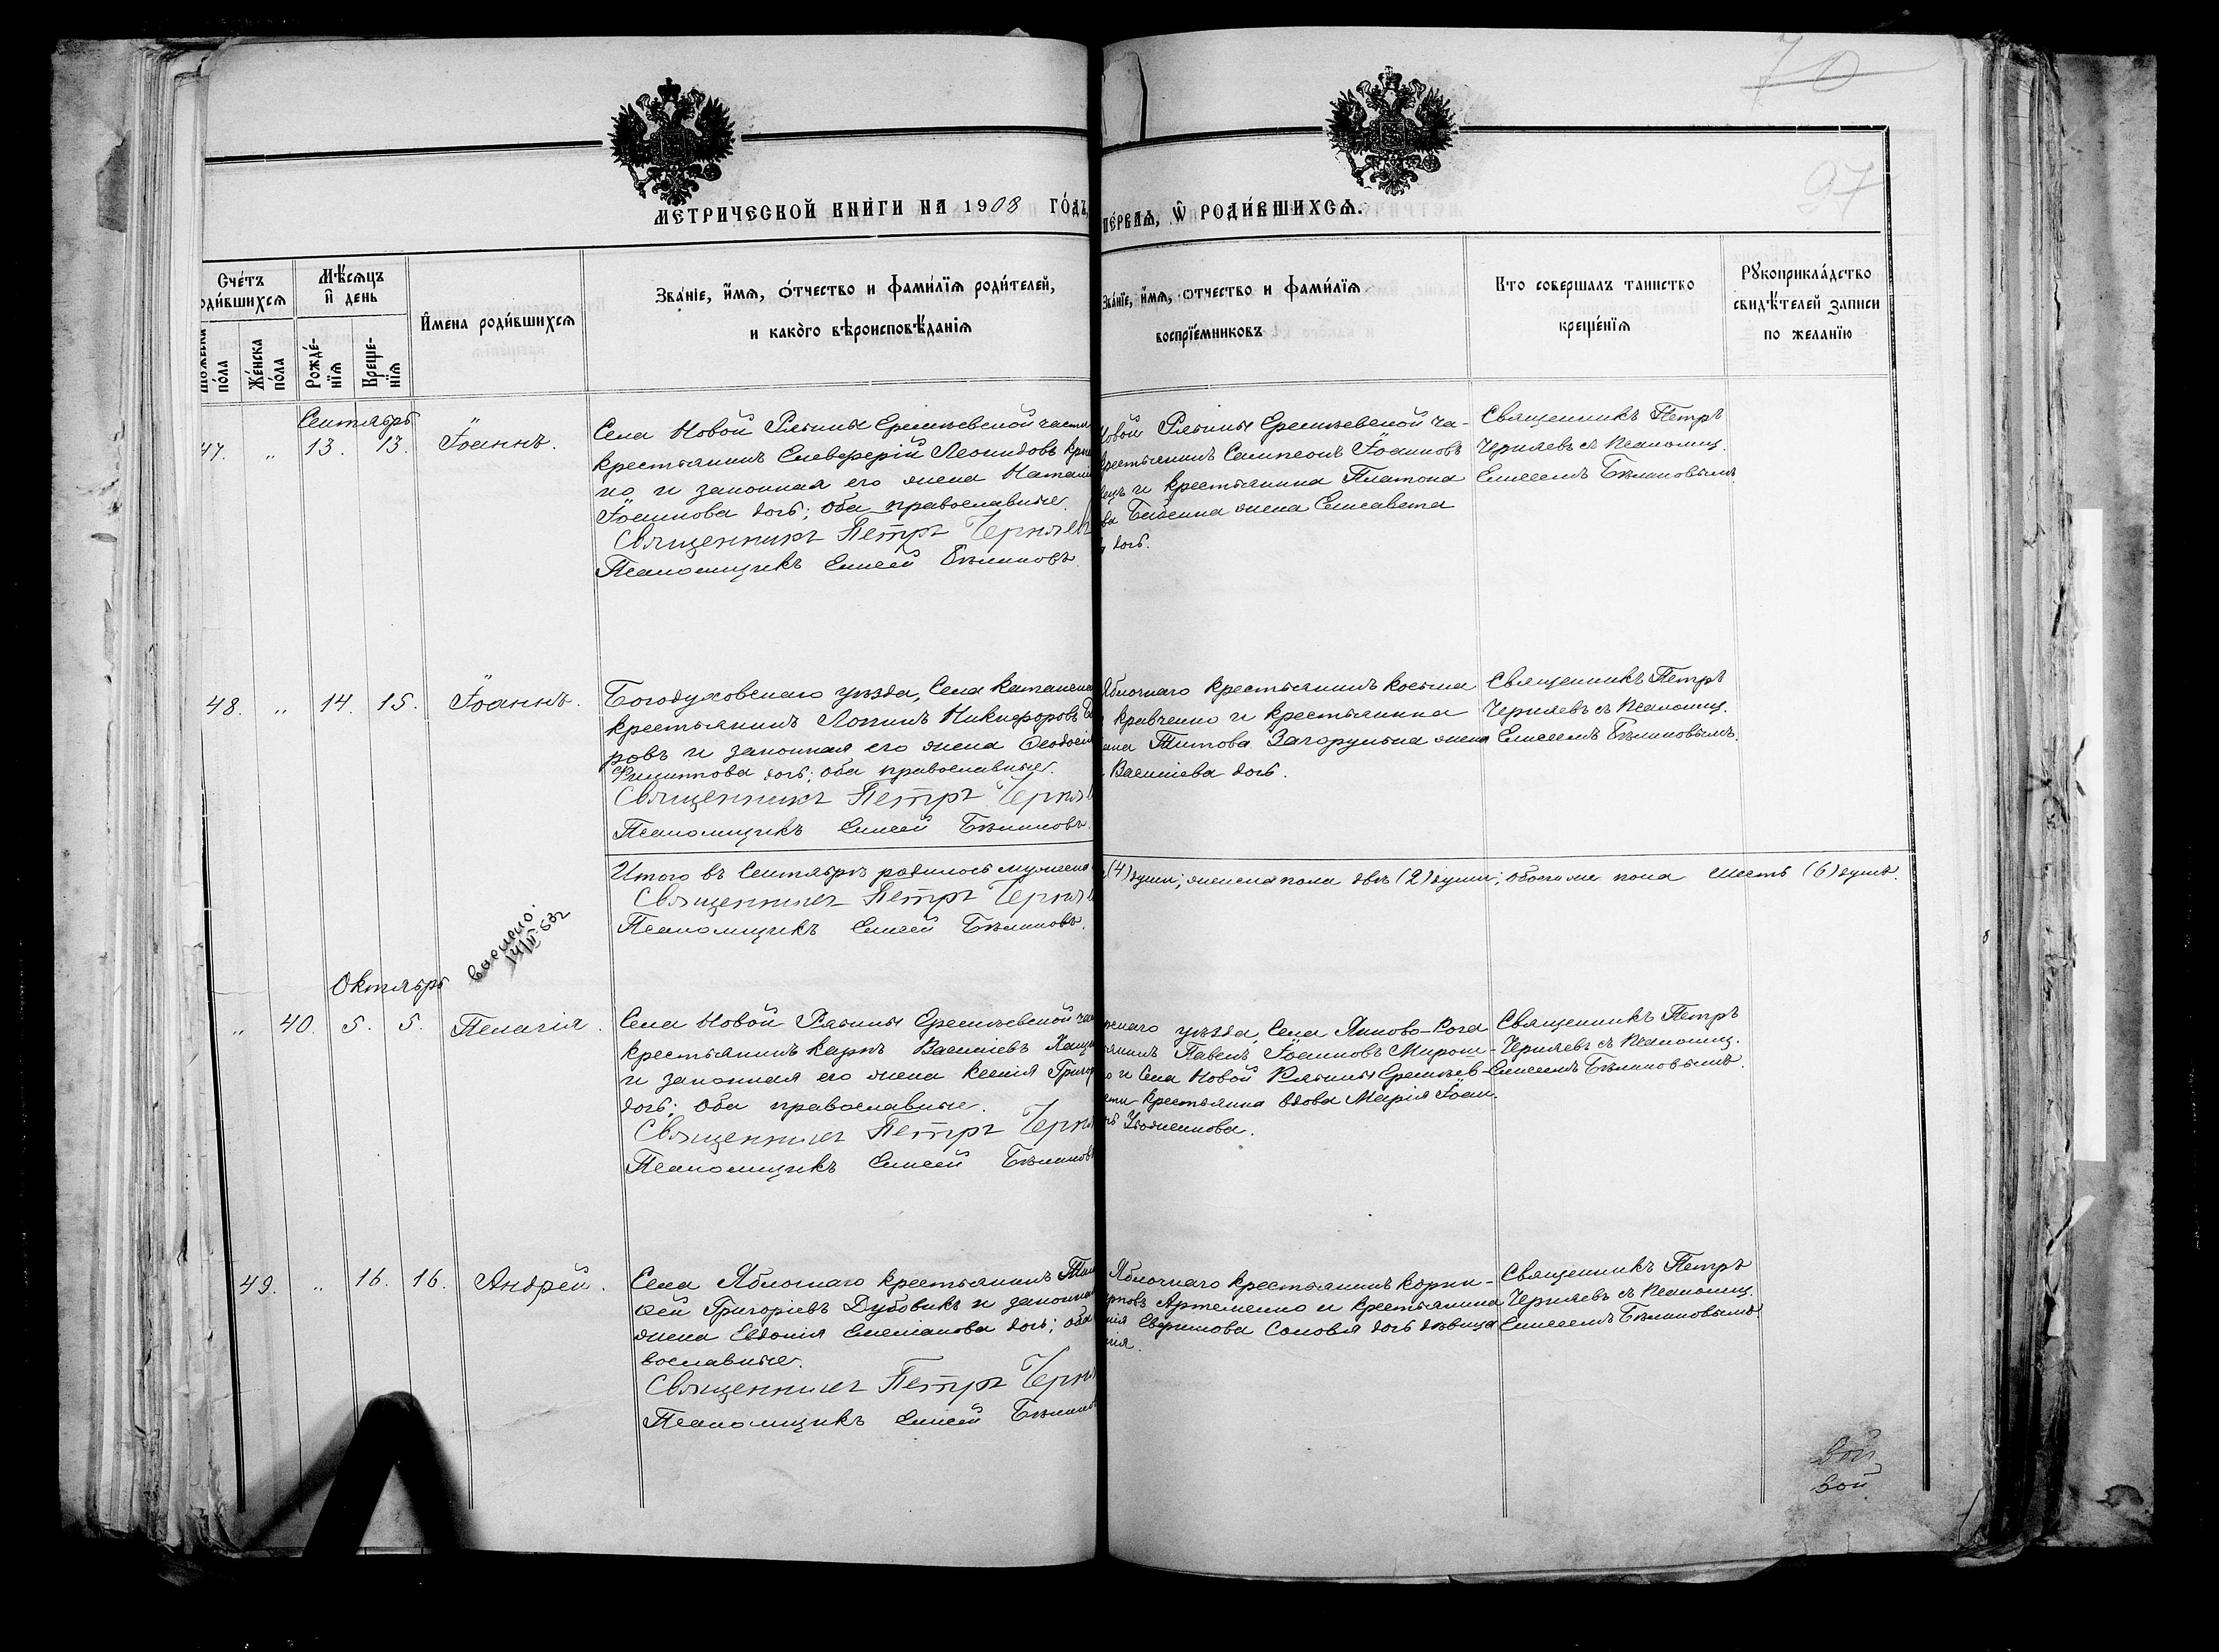 70
97
МЕТРИЧЕСКОЙ КНИГИ НА 1908 ГОДЪ,
ПЕРВАЯ, Ѿ РОДИВШИХСЯ.
Счетъ
одившихся
Мѣсяцъ
и день
пола
Женска
пола
Рожде-
нія
Креще-
нія
Имена родившихся
Званіе, имя, отчество и фамилія родителей,
и какого вѣроисповѣданія
Званіе, имя, отчество и фамилія
воспріемниковъ
Кто совершалъ таинство
крещенія
Рукоприкладство
свидѣтелей записи
по желанію
Сентябрь
47. " 13. 13. Іоаннъ.
Села Новой Рябины Еремѣевской части
крестьянинъ Елевферій Леонидовъ
но и законная его жена
Іоаннова дочь; оба православные.
Священникъ Петръ Черняев
Псаломщикъ Елисей Бѣликовъ
Новой Рябины Еремѣевской ча-
крестьянинъ Сампсонъ Іоанновъ
и крестьянина Платона
ва Бабенка жена Елисавета
дочь.
Священникъ Петръ
Черняевъ съ псаломщ.
Елисеемъ Бѣликовымъ
48. " 14. 15. Іоаннъ.
Богодуховскаго уѣзда, села
крестьянинъ Логинъ Никифоровъ
ровъ и законная его жена Ѳеодосія
Филиппова дочь; оба православные.
Священникъ Петръ Черня
Псаломщикъ Елисей Бѣликовъ
Яблочнаго крестьянинъ Косьма
Кравченко и крестьянина
Титова Загорулька жена
Василіева дочь.
Священникъ Петръ
Черняевъ съ псаломщ.
Елисеемъ Бѣликовымъ.
Итого въ Сентябрѣ родилось мужеска
(4) души; женска пола двѣ (2) души; обоего пола шесть (6) душъ.
Священникъ Петръ Черня
Псаломщикъ Елисей Бѣликовъ.
14/II
Октябрь
" 40. 5. 5. Пелагія.
Села Новой Рябины Еремѣевской ча
крестьянинъ Карпъ Василіевъ
и законная его жена Ксенія Григор
дочь; оба православные.
Священникъ Петръ Черня
Псаломщикъ Елисей Бѣликовъ
уѣзда, села Янково-Рога
Павелъ Іоанновъ Мирош-
и села Новой Рябины Еремѣев-
сти крестьянка вдова Марія Іоан.
Священникъ Петръ
Черняевъ съ псаломщ.
Елисеемъ Бѣликовымъ.
49. " 16. 16. Андрей.
Села Яблочнаго крестьянинъ
ѳей Григоріевъ Дубовикъ и законная
жена Евдокія дочь; оба
вославные.
Священникъ Петръ Черня
Псаломщикъ Елисей Бѣликов
Яблочнаго крестьянинъ Корни-
Артеменко и крестьянина
Соловья дочь дѣвица
Священникъ Петръ
Черняевъ съ псаломщ.
Елисеемъ Бѣликовымъ
вой